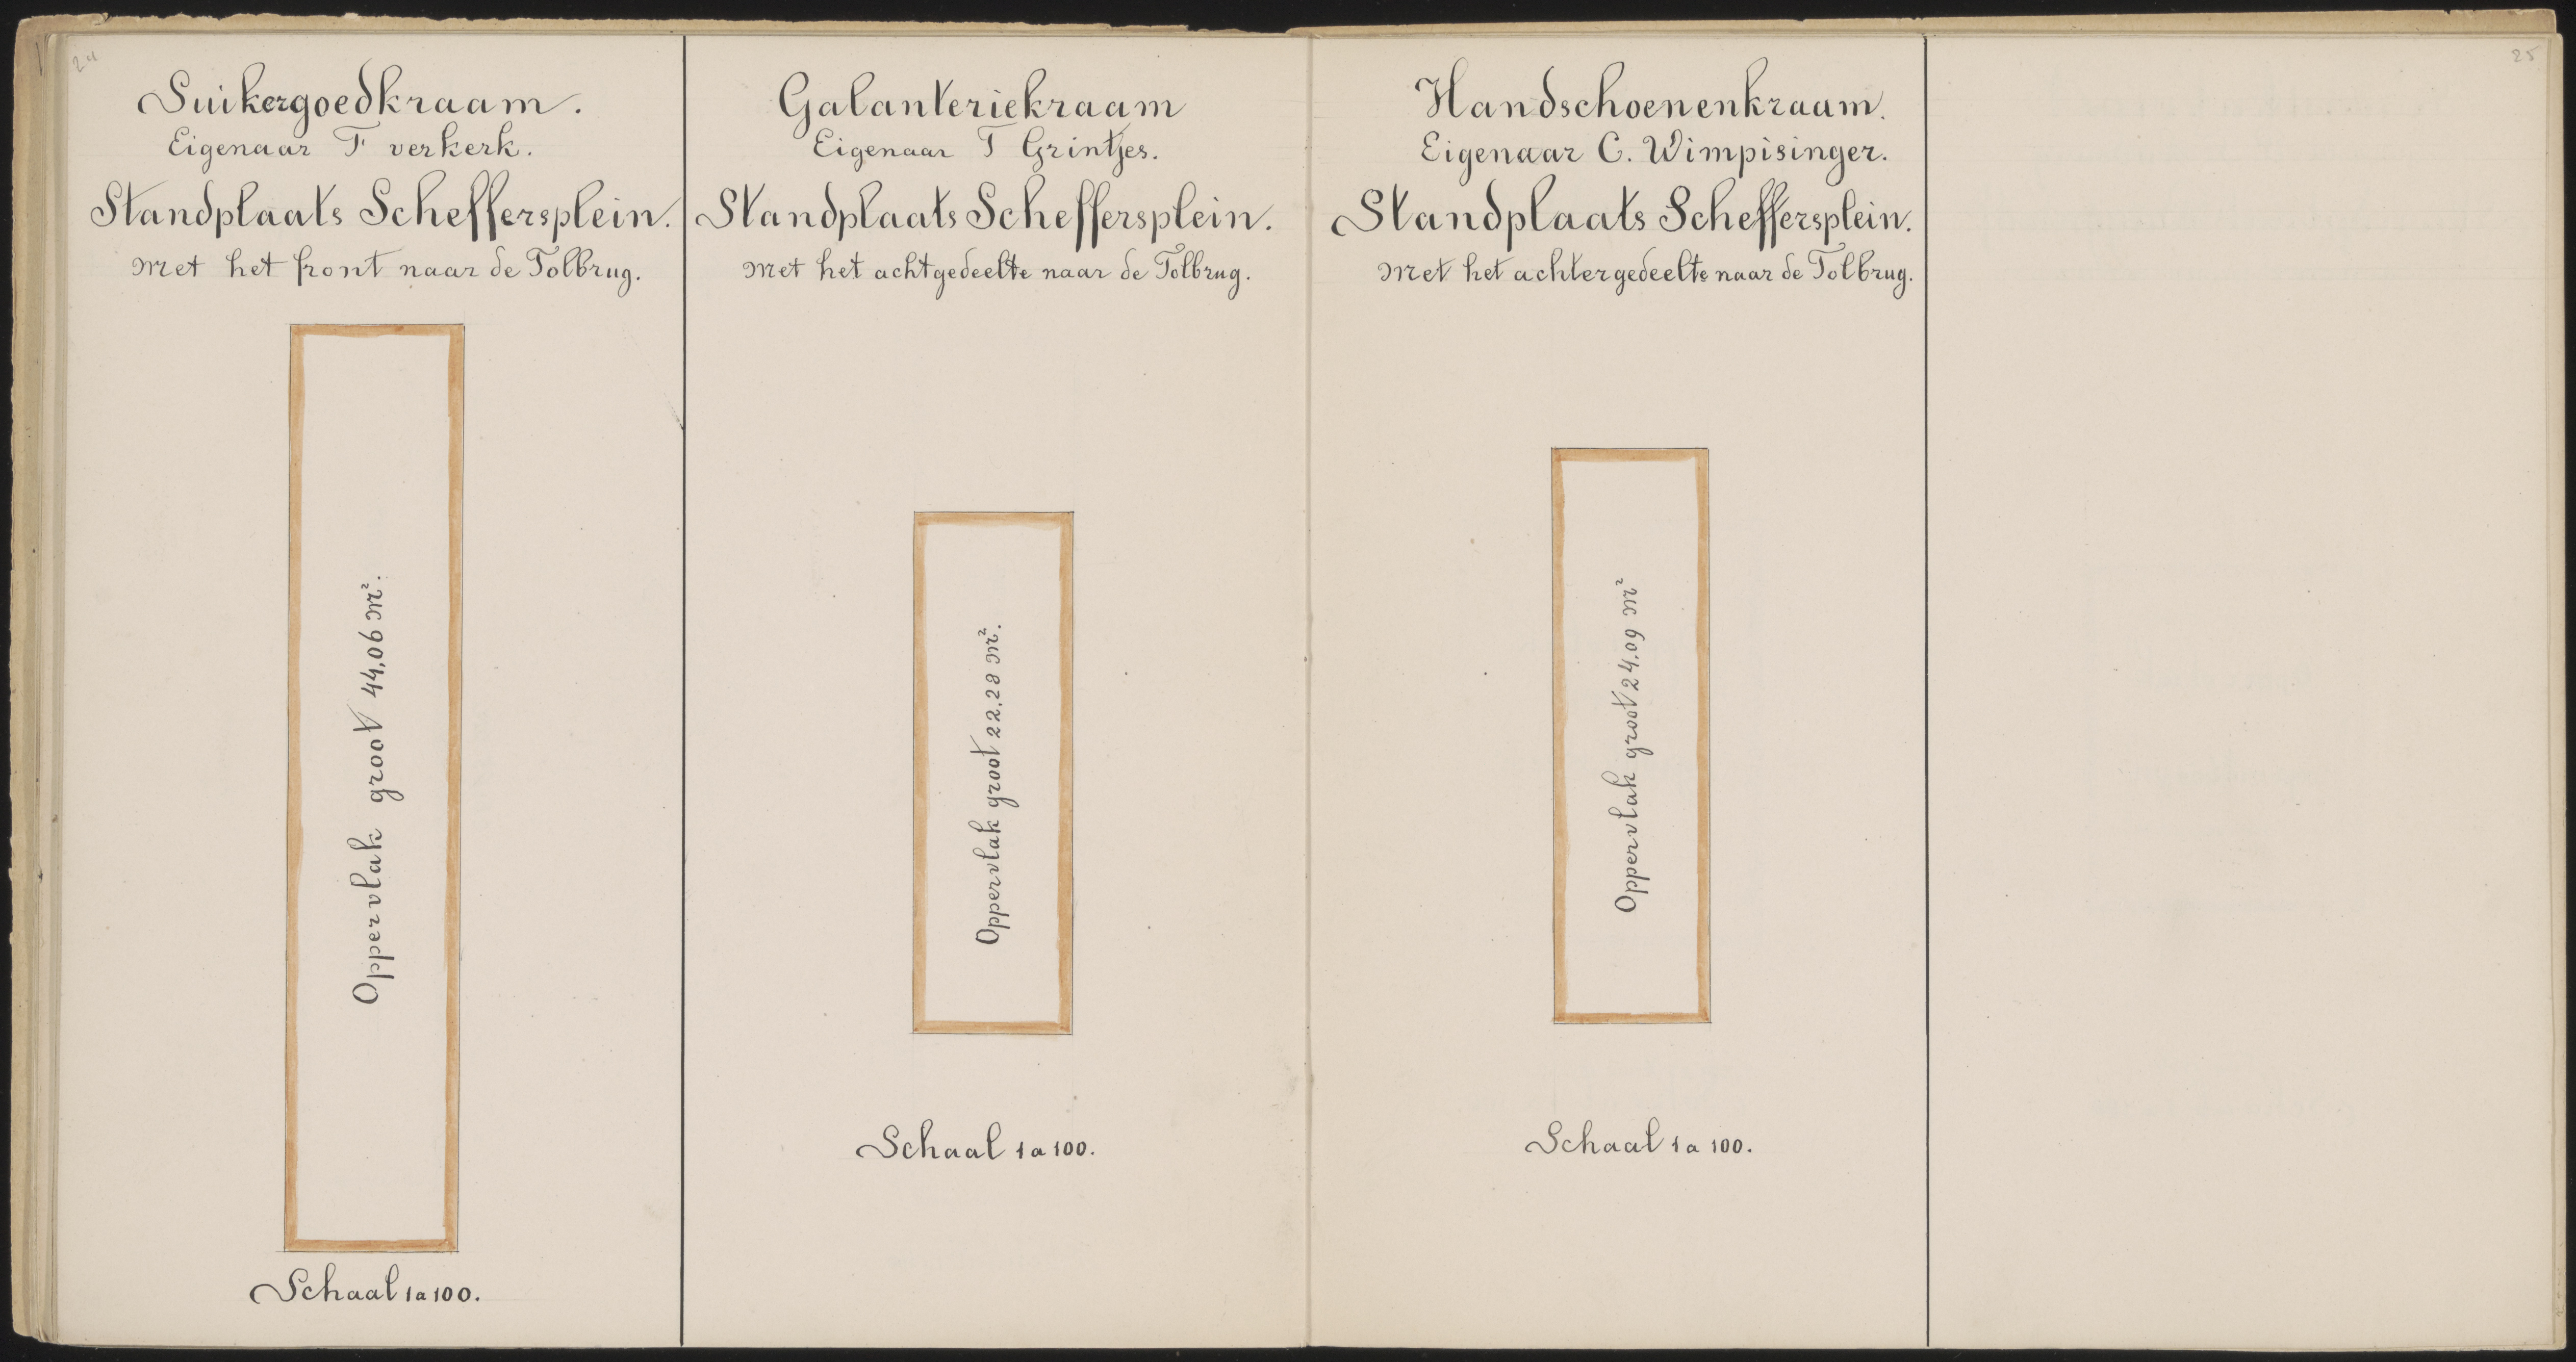 24
Suikergoedkraam.
Eigenaar F verkerk.
Standplaats Scheffersplein.
Met het front naar de Tolbrug.
Oppervlak groot 44,06 M².
Schaal 1 a 100.
Galanteriekraam
Eigenaar T Grintjes.
Standplaats Scheffersplein.
Met het achtgedeelte naar de Tolbrug.
Oppervlak groot 22,28 M².
Schaal 1 a 100.
25
Handschoenenkraam.
Eigenaar C. Wimpisinger.
Standplaats Scheffersplein.
Met het achtergedeelte naar de Tolbrug.
Oppervlak groot 24,09 M²
Schaal 1 a 100.